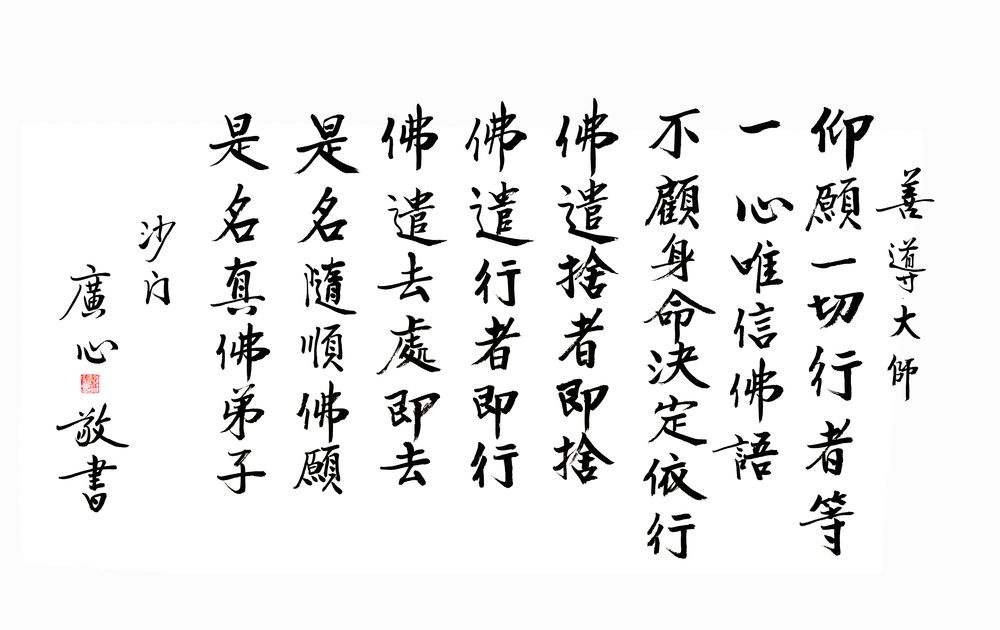 善導大師
仰願一切行者等
一心唯信佛語
不顧身命決定依行
佛遣捨者即捨
佛遣行者即行
佛遣去處即去
是名隨順佛願
是名真佛弟子
沙门
廣心
敬書